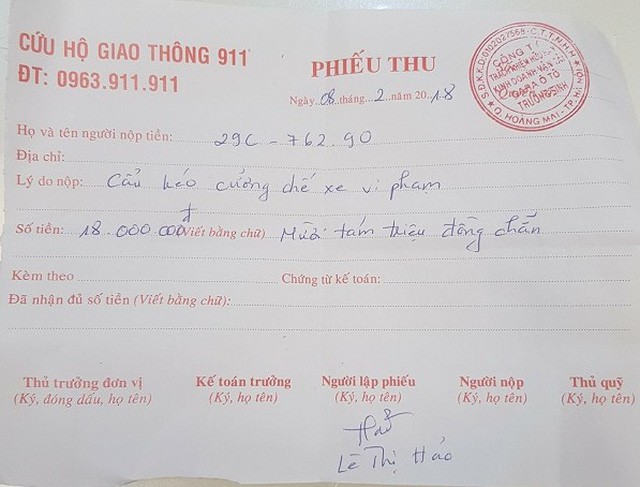 CỨU HỘ GIAO THÔNG 911
ĐT: 0963.911.911
PHIẾU THU
Ngày..08..tháng..2..năm 2018
S.Đ.K.K.D:0102027568-C.T.T.N.H.H
CÔNG TY
TRÁCH NHIỆM HỮU HẠN
KINH DOANH VẬN TẢI
GARA Ô TÔ
TRƯỜNG SINH
Q. HOÀNG MAI - TP. HÀ NỘI
Họ và tên người nộp tiền: 29C - 762.90
Địa chỉ:
Lý do nộp: Cẩu kéo cưỡng chế xe vi phạm
Số tiền: 18.000.000đ (Viết bằng chữ) Mười tám triệu đồng chẵn
Kèm theo Chứng từ kế toán:
Đã nhận đủ số tiền (Viết bằng chữ):
Thủ trưởng đơn vị Kế toán trưởng Người lập phiếu Người nộp Thủ quỹ
(Ký, đóng dấu, họ tên) (Ký, họ tên) (Ký, họ tên) (Ký, họ tên) (Ký, họ tên)
Hảo
Lê Thị Hảo